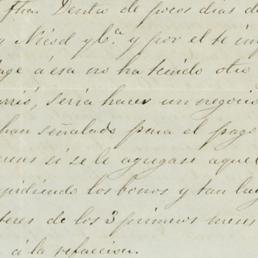 Dentro de pocos dias d
y Nicod y Cª. y por el te in
age á esa no ha tenido otro
seria hacer un negocio
han señalado para el pago
si se le agregase aque
pidiendo los bonos y tan lu
teres de los 3 primeros mes
á la refaccion.